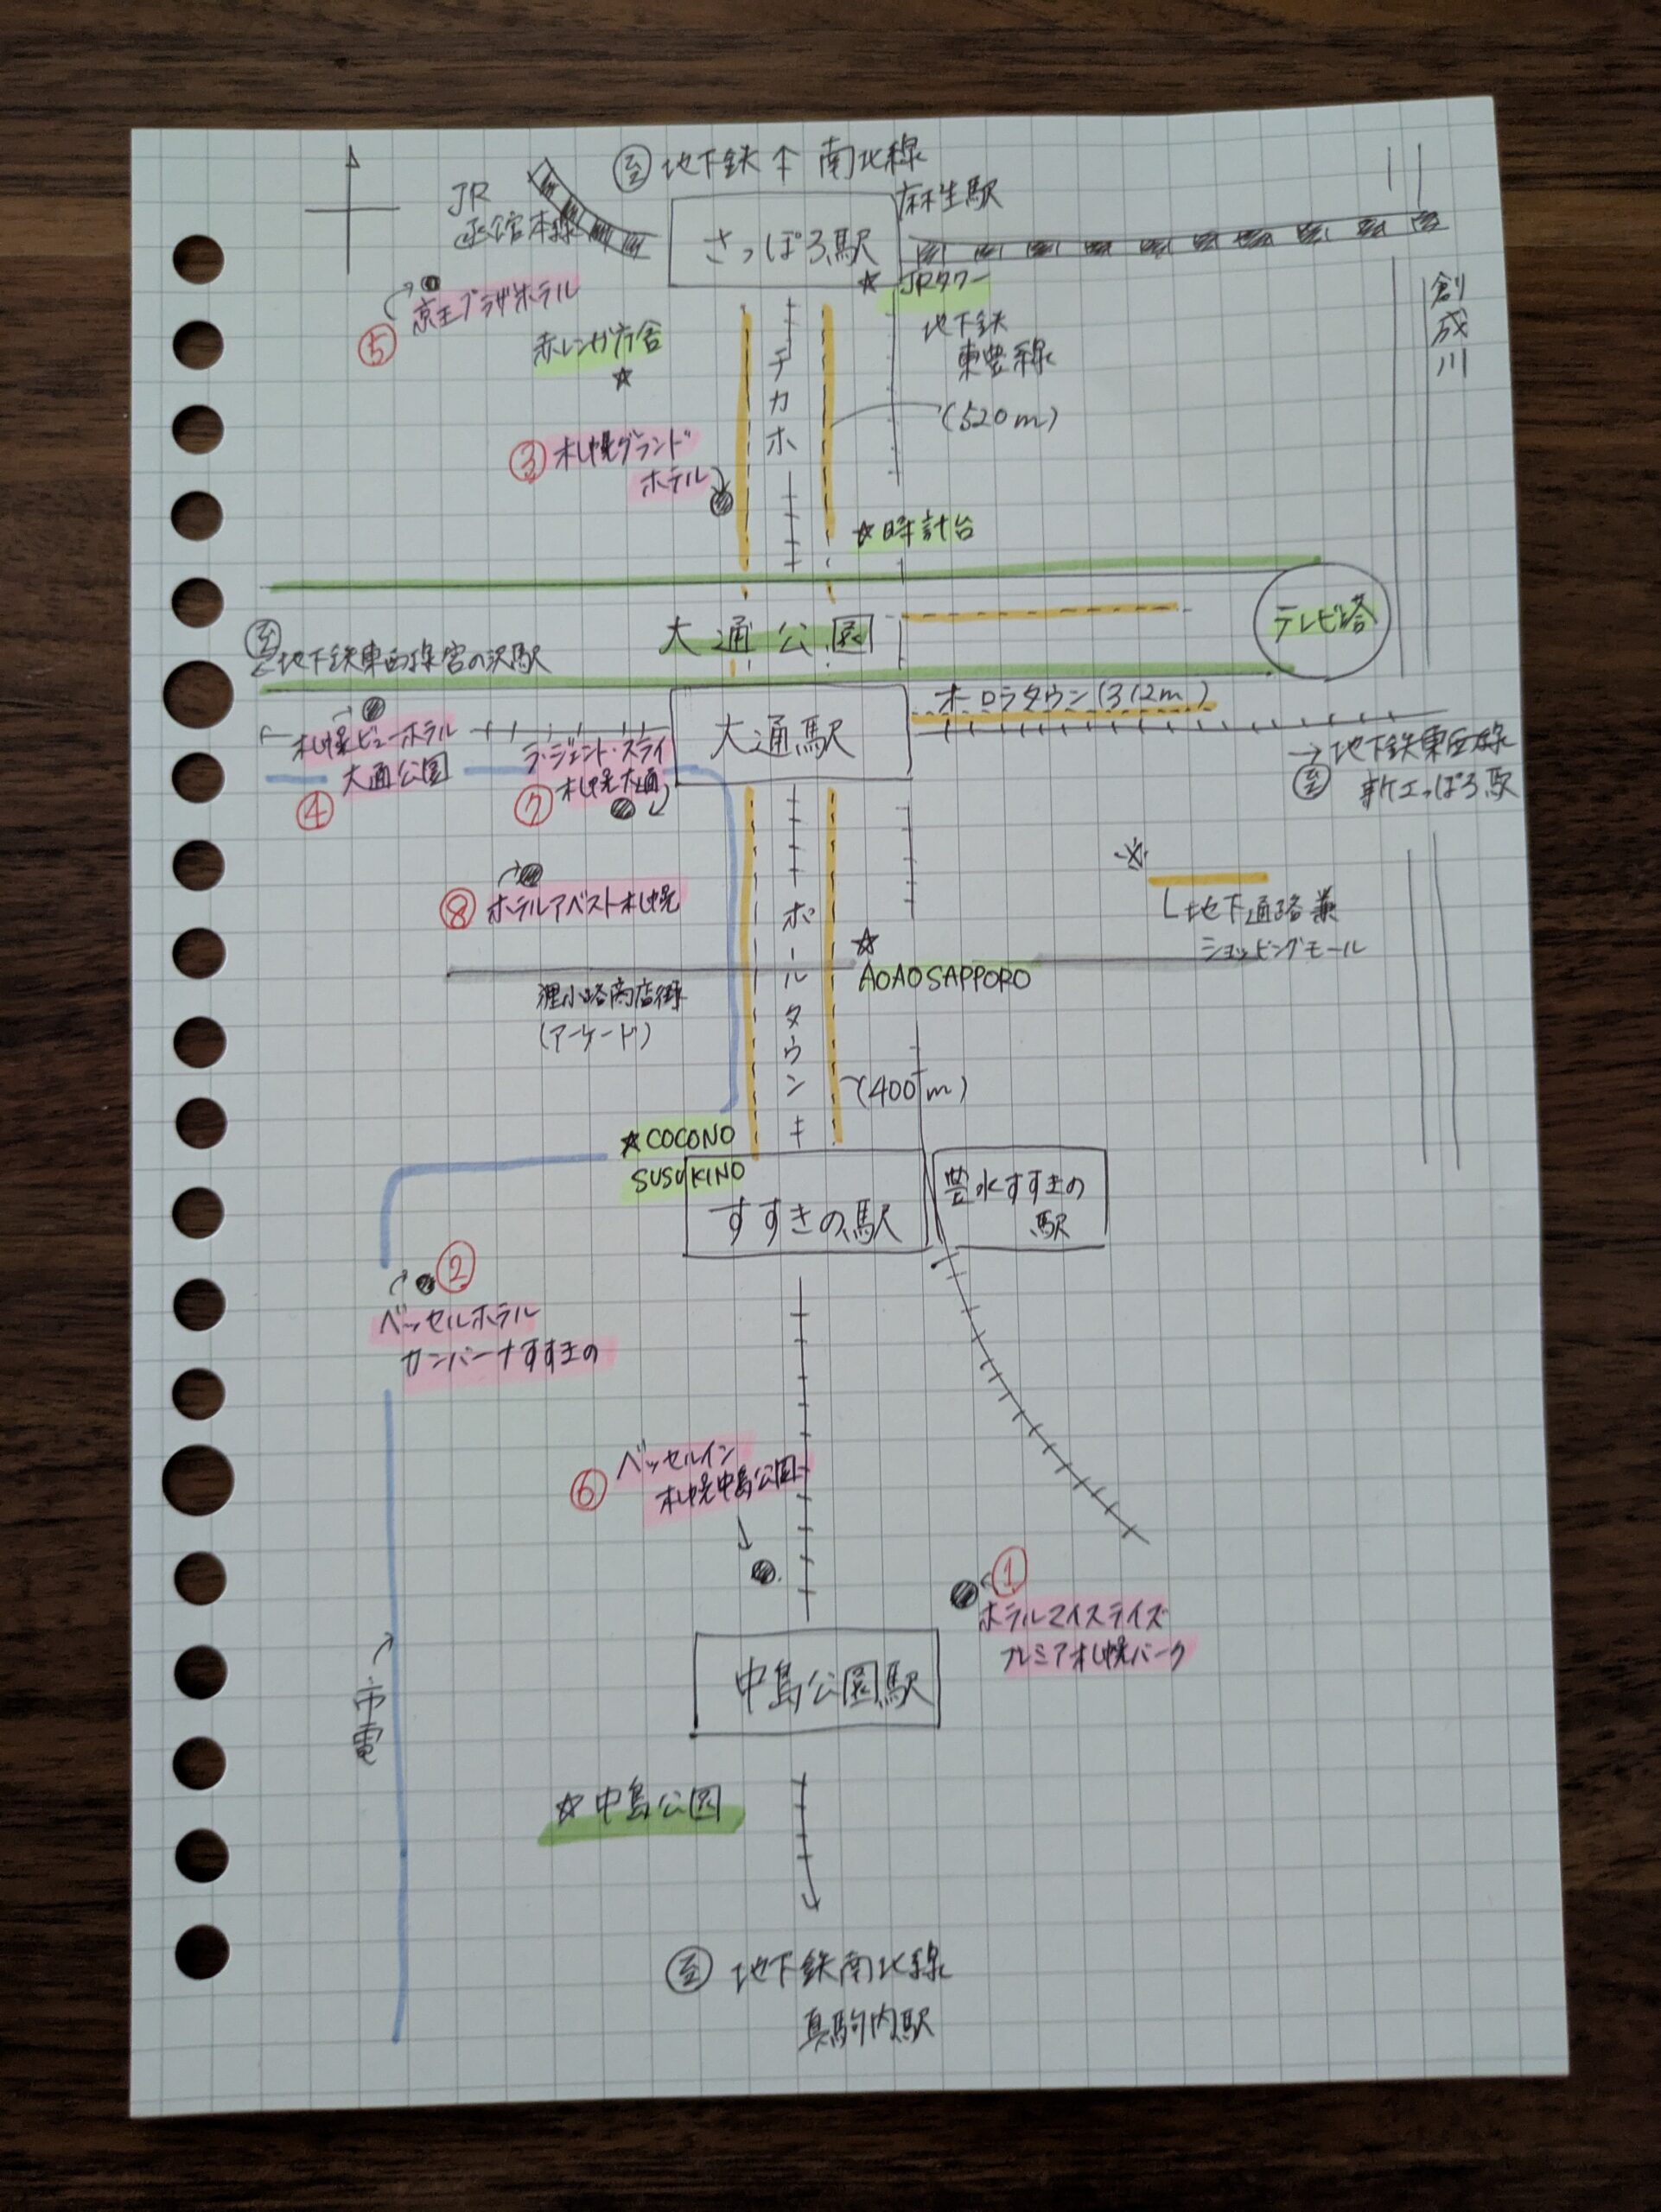 至 地下鉄 ↑ 南北線
麻生駅
JR
函館本線
さっぽろ駅
☆ JRタワー
創成川
⑤ 京王プラザホテル
赤レンガ庁舎
☆
地下鉄
東豊線
チカホ
(520m)
③ 札幌グランド
ホテル
☆時計台
大通公園
テレビ塔
至
地下鉄東西線宮の沢駅
オーロラタウン(312m)
大通駅
札幌ビューホテル
大通公園
④
ラ・ジェント・ステイ
札幌大通
⑦
→地下鉄東西線
至 新さっぽろ駅
⑧ ホテルアベスト札幌
ポールタウン
※
地下通路兼
ショッピングモール
☆
AOAO SAPPORO
狸小路商店街
(アーケード)
(400m)
☆COCONO
SUSUKINO
すすきの駅
豊水すすきの
駅
②
ベッセルホテル
カンパーナすすきの
⑥ ベッセルイン
札幌中島公園
①
ホテルマイステイズ
プレミア札幌パーク
中島公園駅
市電
☆中島公園
至 地下鉄南北線
真駒内駅